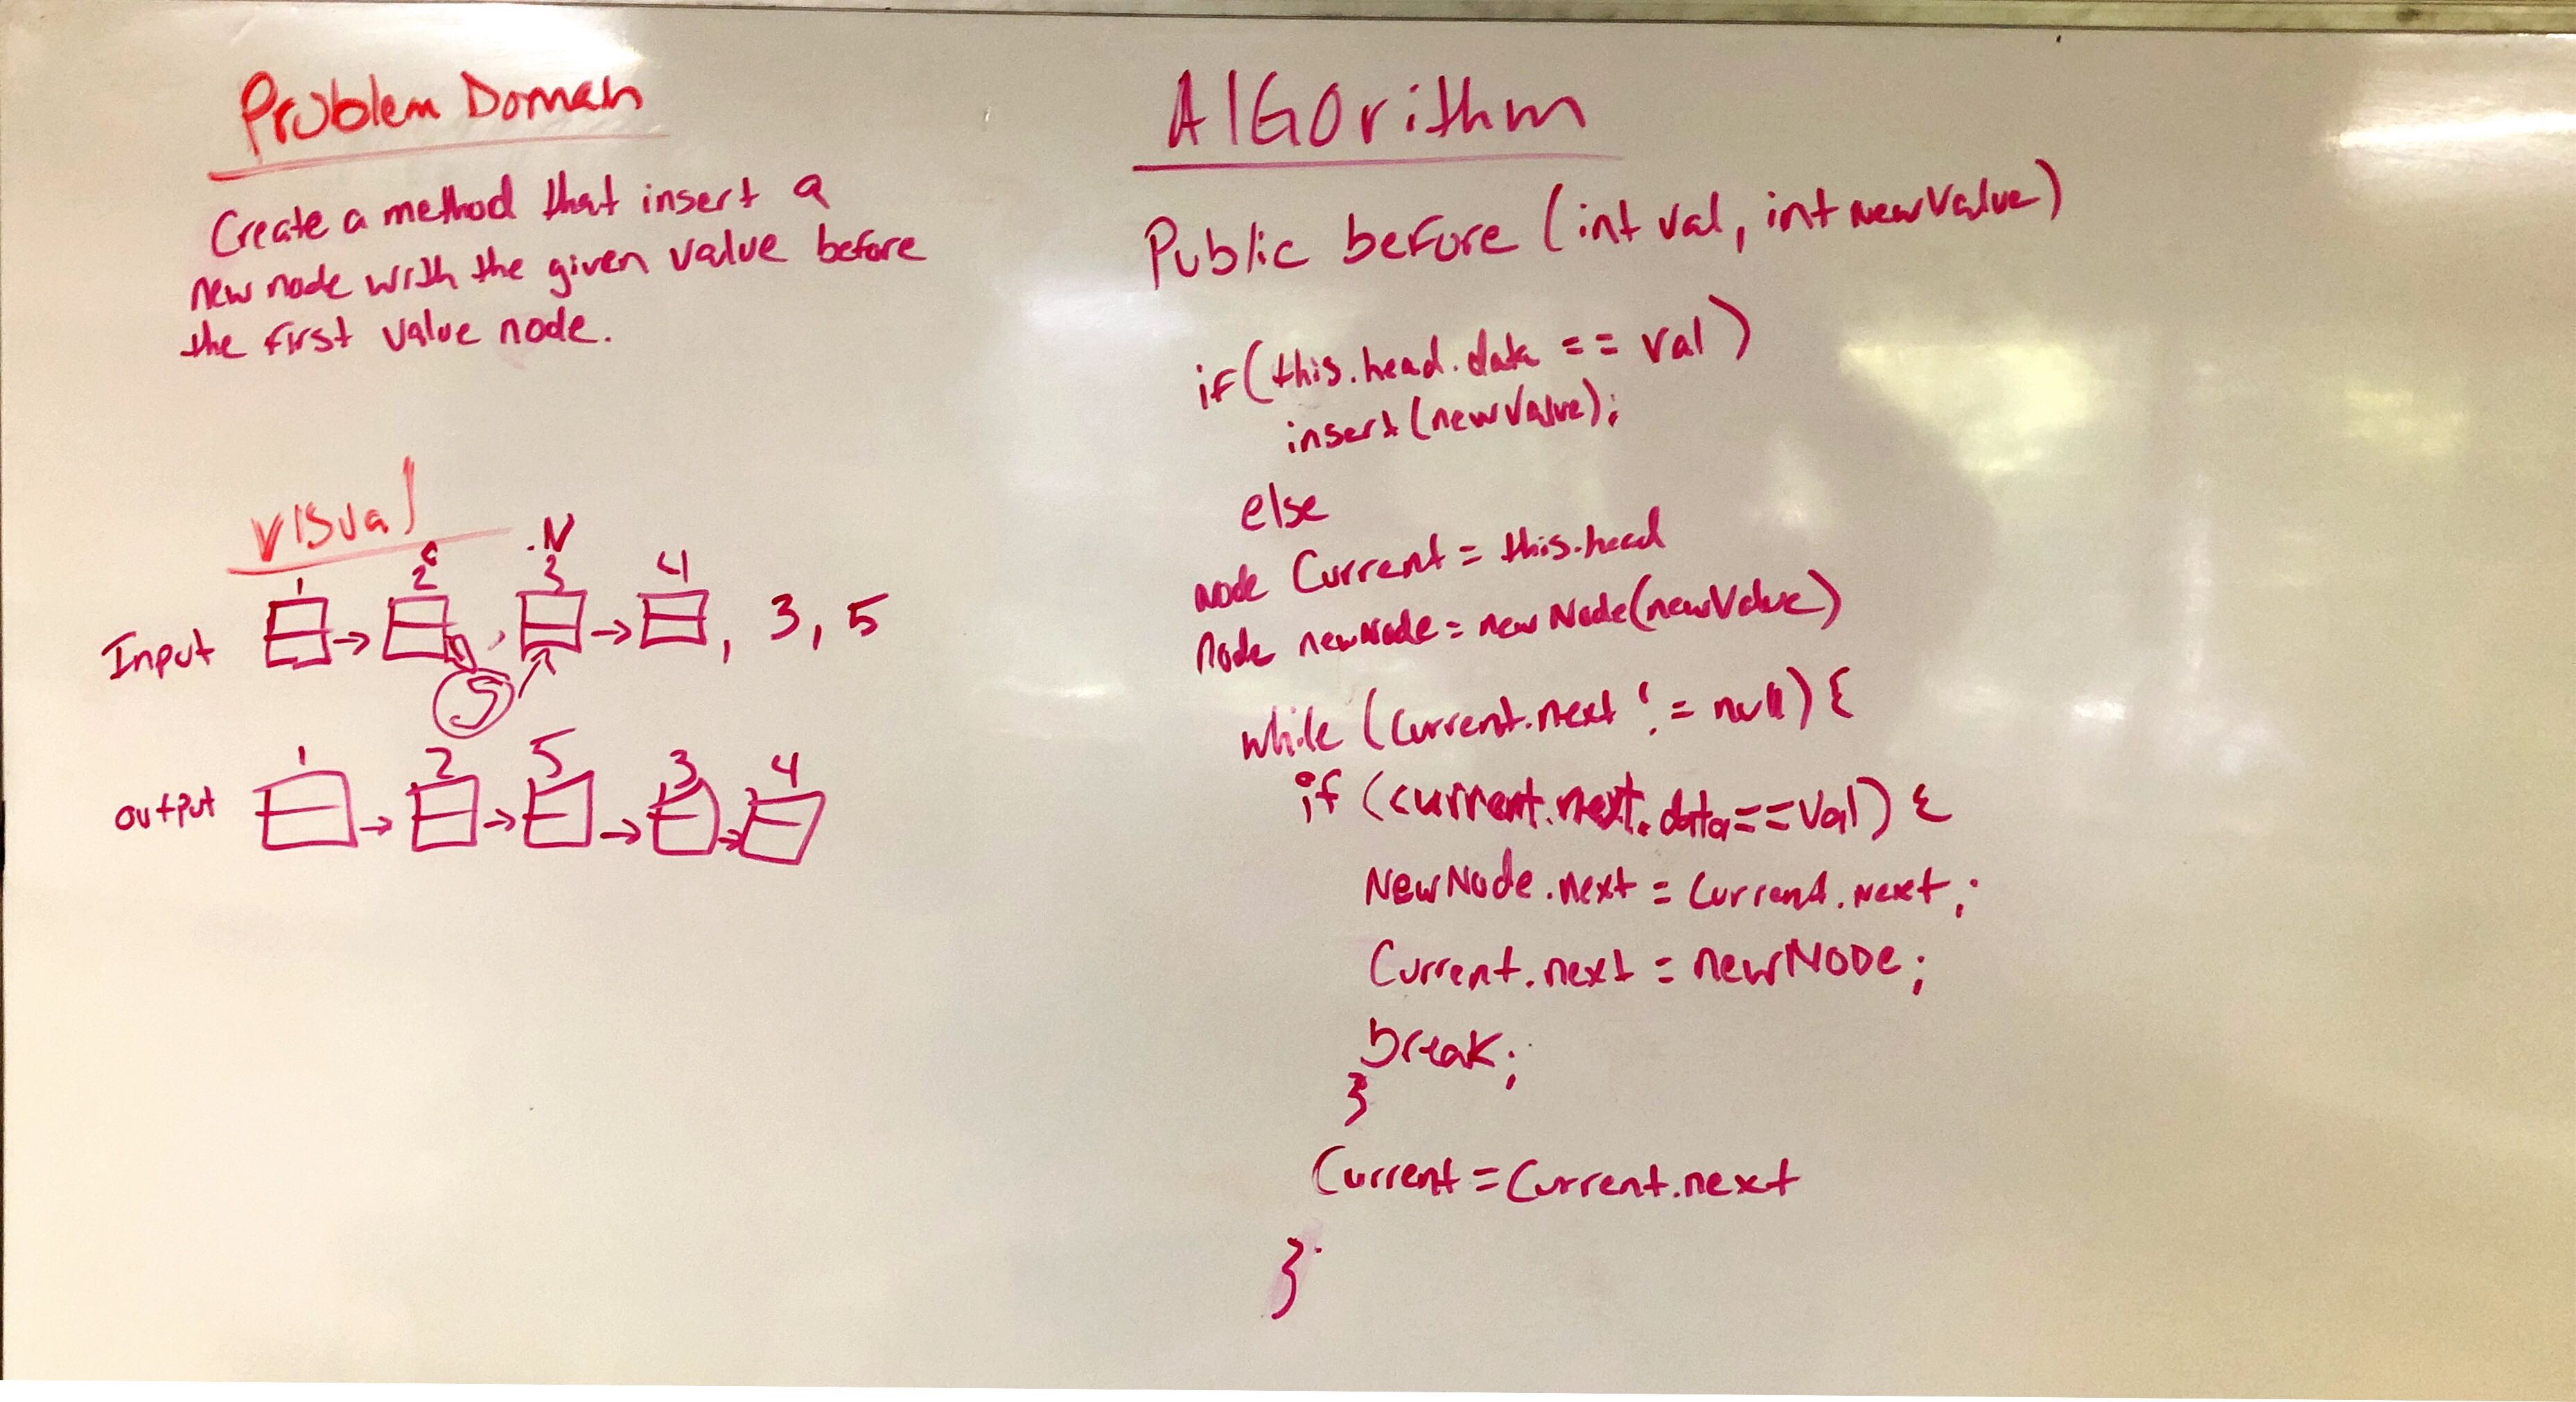 Problem Domain
Create a method that insert a
new node with the given value before
the first value node.
Visual
c .N
1 2 3 4
Input , 3, 5
5
1 2 5 3 4
output
AlGOrithm
Public before (int val, int newValue)
if(this.head.data == val)
insert(newValue);
else
node Current = this.head
Node newNode = new Node(newValue)
while (current.next != null) {
if (current.next.data==val) {
NewNode.next = Current.next;
Current.next = newNODe;
break;
}
Current = Current.next
}